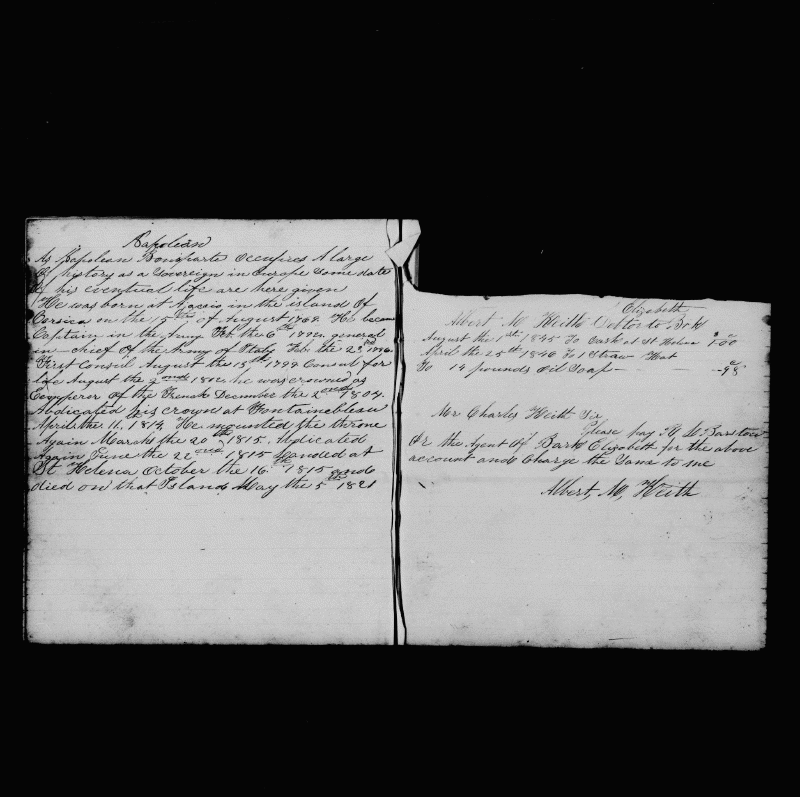 Napolean
As Napolean Boniparte Occupies A large
Of history as a Sovereign in Europe Some dates
Of his eventual life are here given
He was born at Ajacio in the island Of
Corsica on the 15th of August 1769. He became
Captain in the Army Feb. the 6th 1792. general
in-chief Of the Army of Italy Feb. the 23rd 1796.
First Consul August the 15th 1799 Consul for
life August the 2nd 1802. he was crowned as
Eomperor Of the French December the 2ond 1804.
Abdicated his crown at Fontainebleau
April the 11. 1814. He mounted the throne
Again March the 20th 1815. Abdicated
Again June the 22ond 1815 Landed at
St Helena October the 16th 1815 and
died on that Island May the 5th 1821
Elizabeth
Albert M Keith Debtor to Bark
August the 1st 1845 To Cash at St Helena $1.00
April the 25th 1846 To 1 Straw Hat
To 14 pounds Oil Soap - -98
Mr Charles Keith Sir
Please pay H Barstow
Or the Agent Of Bark Elizabeth for the above
account and Charge the Same to me
Albert, M, Keith